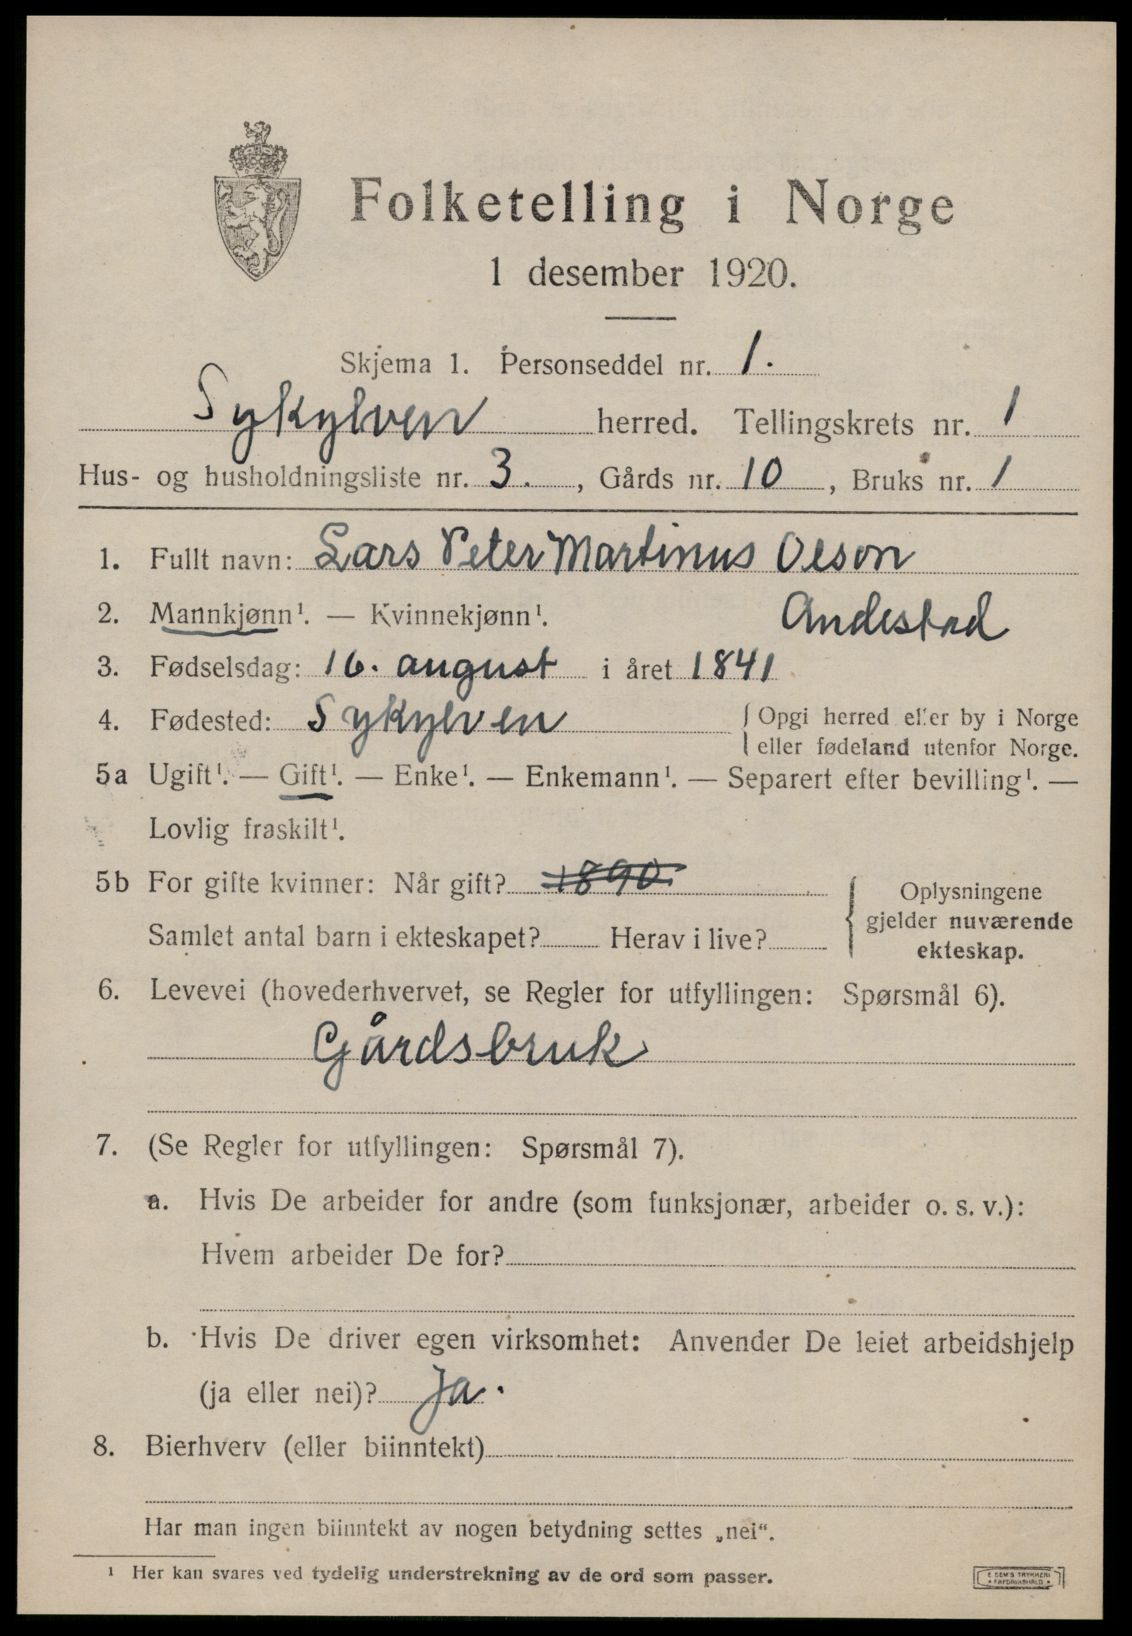 Folketelling i Norge
1 desember 1920.
Skjema 1. Personseddel nr. 1.
Sykylven herred. Tellingskrets nr. 1
Hus- og husholdningsliste nr. 3. , Gårds nr. 10 , Bruks nr. 1
1. Fullt navn: Lars Peter Martinus Olson
Andestad
2. Mannkjønn¹. — Kvinnekjønn¹.
3. Fødselsdag: 16. august i året 1841
4. Fødested: Sykylven { Opgi herred eller by i Norge
eller fødeland utenfor Norge.
5a Ugift¹. — Gift¹. — Enke¹. — Enkemann¹. — Separert efter bevilling¹. —
Lovlig fraskilt¹.
5b For gifte kvinner: Når gift? 1890.
Samlet antal barn i ekteskapet? Herav i live?
Oplysningene
gjelder nuværende
ekteskap.
6. Levevei (hovederhvervet, se Regler for utfyllingen: Spørsmål 6).
Gårdsbruk
7. (Se Regler for utfyllingen: Spørsmål 7).
a. Hvis De arbeider for andre (som funksjonær, arbeider o. s. v.):
Hvem arbeider De for?
b. Hvis De driver egen virksomhet: Anvender De leiet arbeidshjelp
(ja eller nei)? Ja.
8. Bierhverv (eller biinntekt)
Har man ingen biinntekt av nogen betydning settes „nei“.
¹ Her kan svares ved tydelig understrekning av de ord som passer.